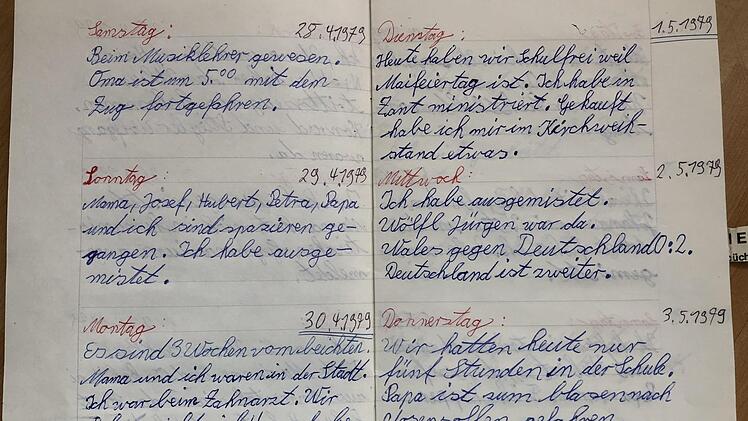 Samstag: 28.4.1979
Beim Musiklehrer gewesen.
Oma ist um 5.00 mit dem
Zug fortgefahren.
Sonntag: 29.4.1979
Mama, Josef, Hubert, Petra, Papa
und ich sind spazieren ge-
gangen. Ich habe ausge-
mistet.
Montag: 30.4.1979
Es sind 3 Wochen vom beichten.
Mama und ich waren in der Stadt.
Ich war beim Zahnarzt. Wir
Dienstag: 1.5.1979
Heute haben wir Schulfrei weil
Maifeiertag ist. Ich habe in
Zant ministriert. Gekauft
habe ich mir im Kirchweih-
stand etwas.
Mittwoch: 2.5.1979
Ich habe ausgemistet.
Wölfl Jürgen war da.
Wales gegen Deutschland 0:2.
Deutschland ist zweiter.
Donnerstag: 3.5.1979
Wir hatten heute nur
fünf Stunden in der Schule.
Papa ist zum blasen nach
gefahren